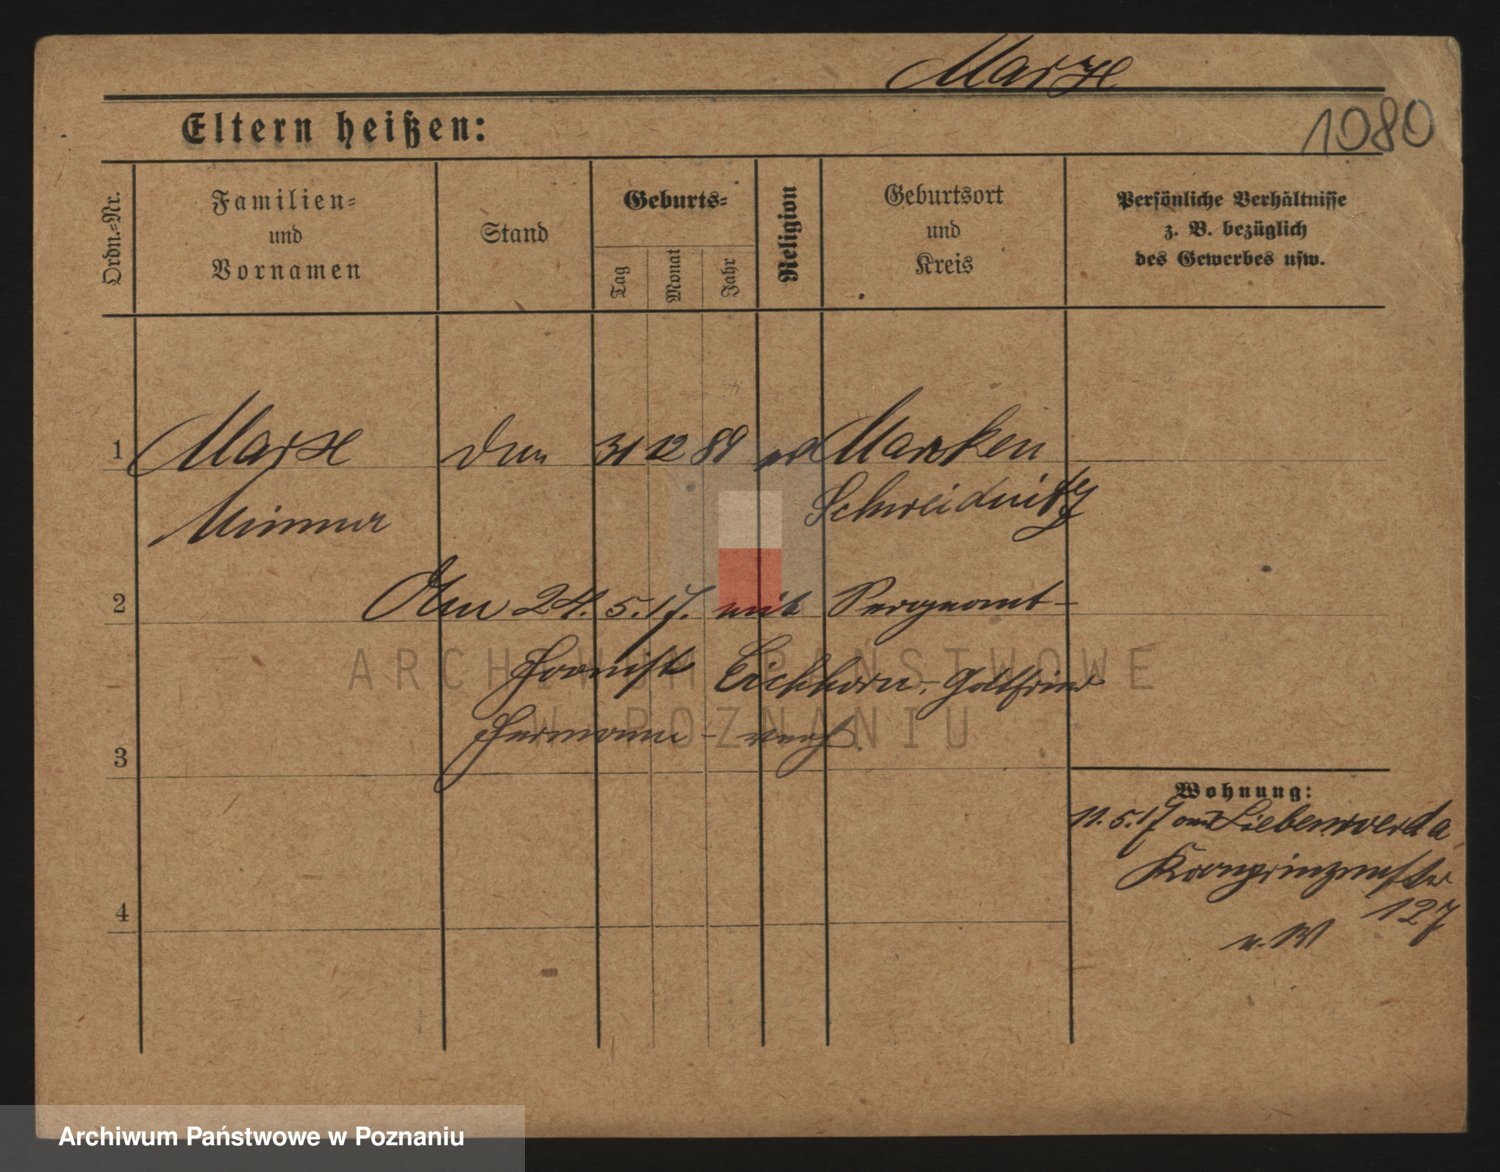 Marx
1080
Eltern heißen:
Ordn.-Nr.
Familien-
und
Vornamen
Stand
Geburts-
Tag
Monat
Jahr
Religion
Geburtsort
und
Kreis
Persönliche Verhältnisse
z. B. bezüglich
des Gewerbes usw.
1 31 12 89
Schweidnitz
2 24. 5. 17. mit Sergeant
Eichhorn, Gottfried
Hermann - verh.
3
Wohnung:
11. 5. 17 aus Liebenwerda
Kronprinzenstr
127
4
ARCHIWUM PAŃSTWOWE
W POZNANIU
Archiwum Państwowe w Poznaniu